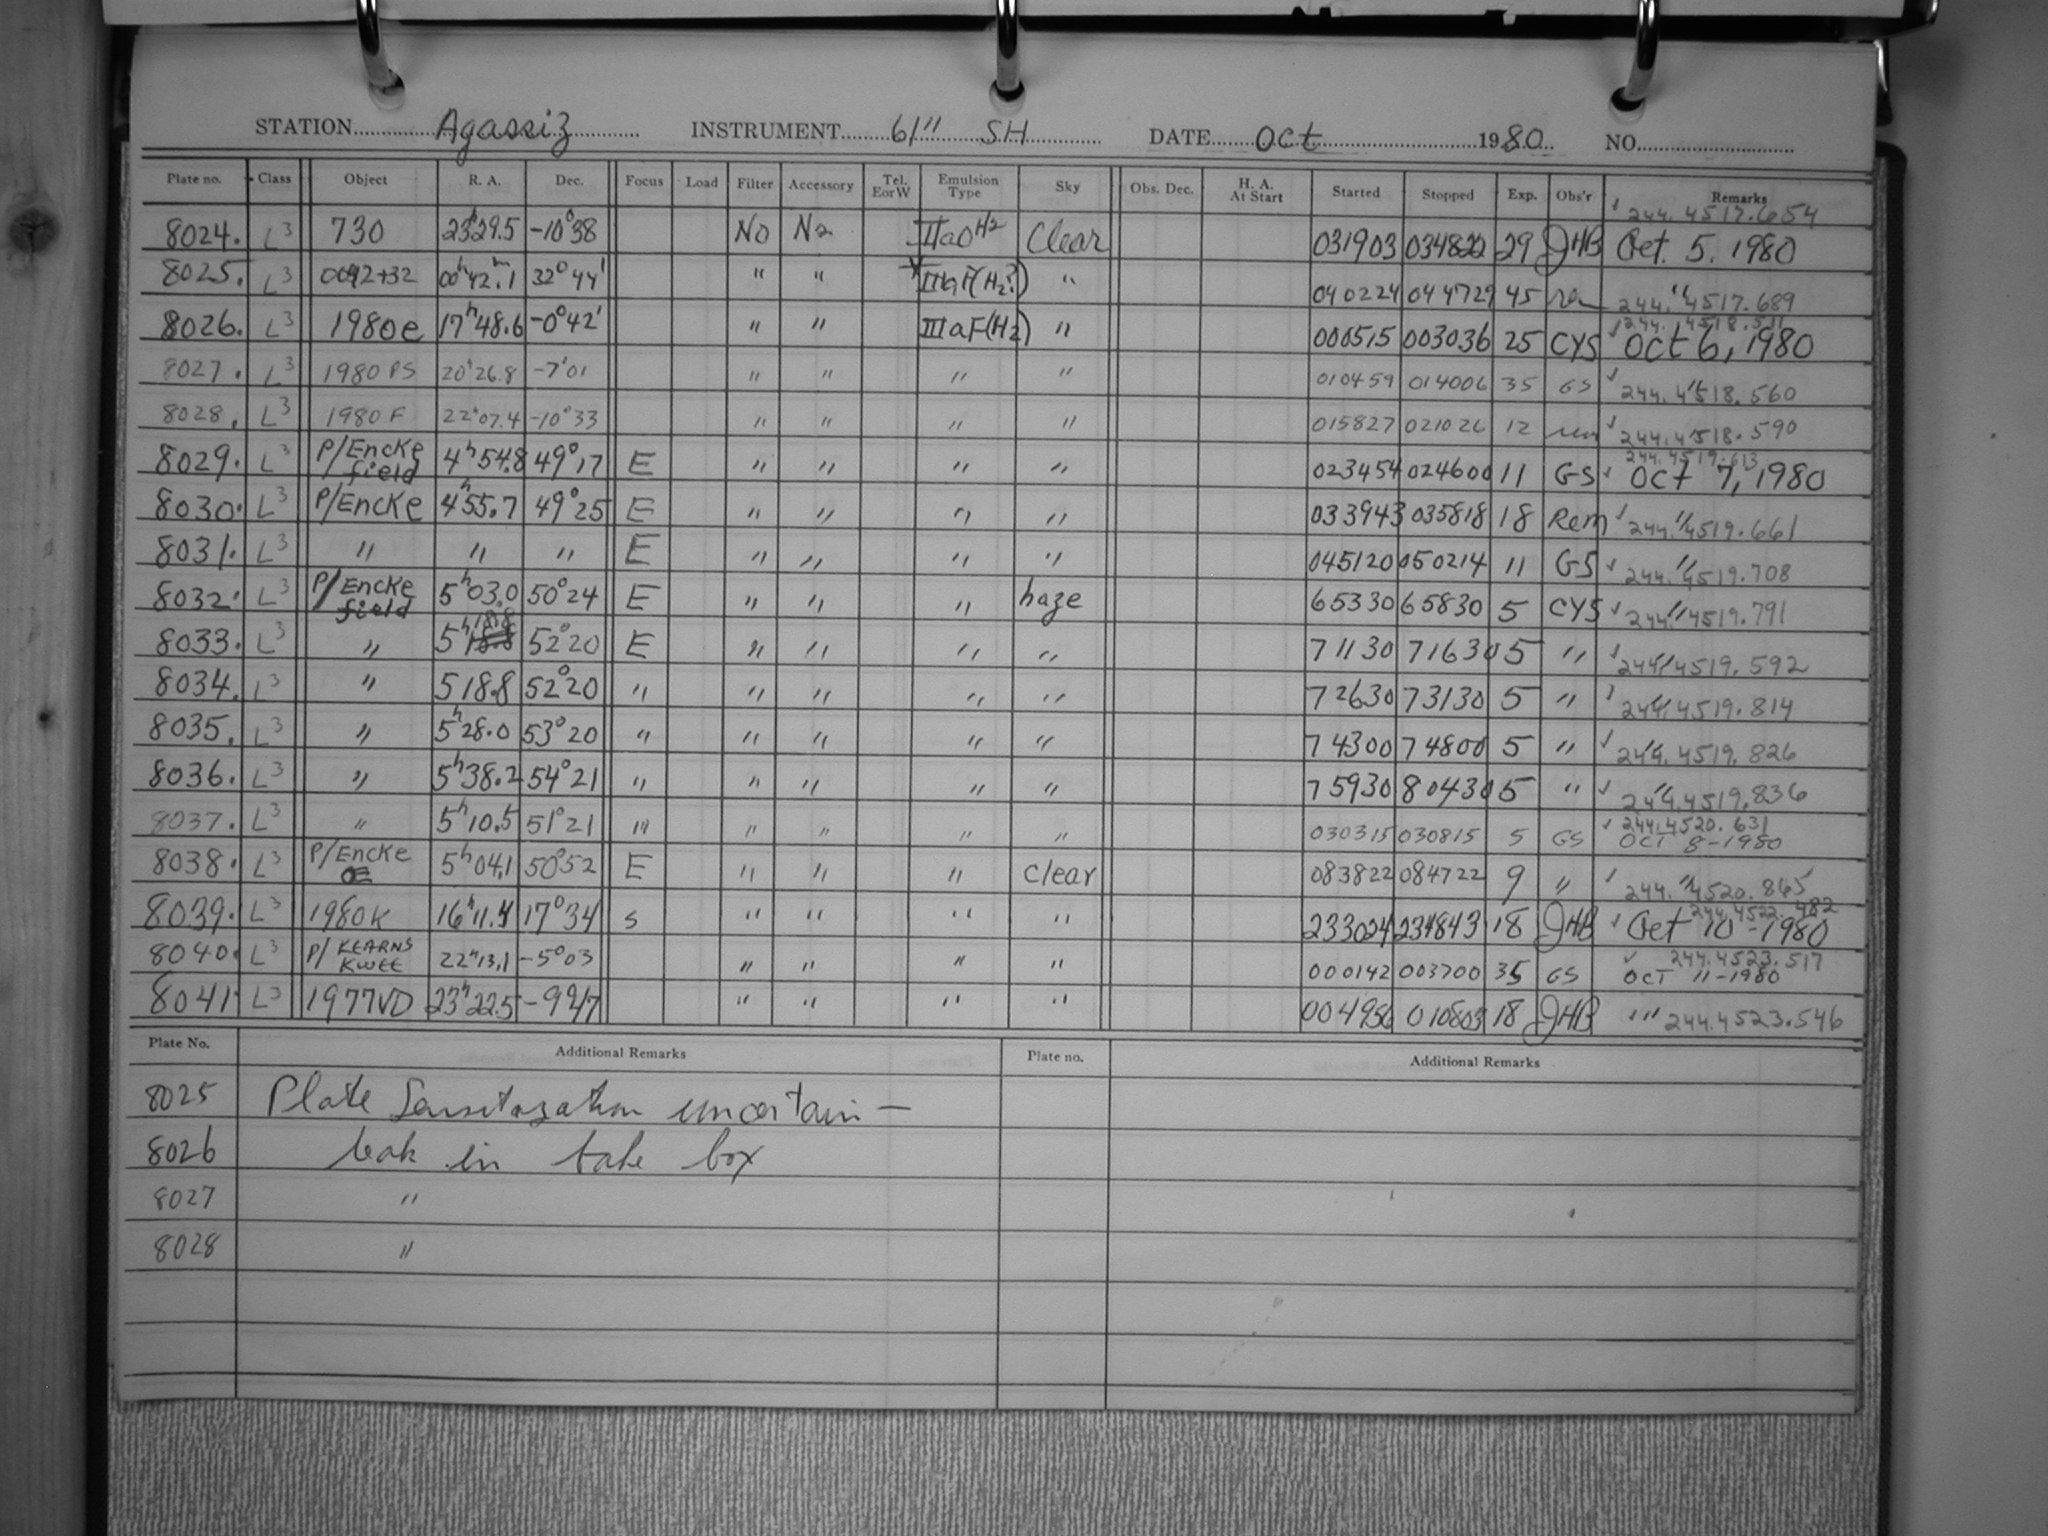 STATION Agassiz INSTRUMENT 61" SH DATE Oct 1980 NO.
Plate no. Class Object R. A. Dec. Focus Load Filter Accessory Tel. E or W Emulsion Type Sky Obs. Dec. H. A. At Start Started Stopped Exp. Obs'r Remarks
244.4517.654
8024. L3 730 23h29.5 -10°38 No No IIaO H2 Clear 031903 034820 29 JHB Oct. 5. 1980
8025. L3 0042+32 00h42m.1 32°44' " " IIIaF(H2?) " 040224 044727 45 rem " 244.4517.689
244.4518.511
8026. L3 1980e 17h48.6 -0°42' " " IIIaF(H2) " 000515 003036 25 CYS Oct 6, 1980
8027. L3 1980 PS 20h26.8 -7°01 " " " " 010459 014006 35 GS " 244.4518.560
8028. L3 1980 F 22h07.4 -10°33 " " " " 015827 021026 12 rem " 244.4518.590
244.4519.613
8029. L3 P/Encke field 4h54.8 49°17 E " " " " 023454 024600 11 GS Oct 7, 1980
8030. L3 P/Encke 4h55.7 49°25 E " " " " 033943 035818 18 Rem " 244.4519.661
8031. L3 " " " E " " " " 045120 050214 11 GS " 244.4519.708
8032. L3 P/Encke field 5h03.0 50°24 E " " " haze 65330 65830 5 CYS " 244.4519.791
8033. L3 " 5h18.8 52°20 E " " " " 71130 71630 5 " " 244.4519.592
8034. L3 " 518.8 52°20 " " " " " 72630 73130 5 " " 244.4519.814
8035. L3 " 5h28.0 53°20 " " " " " 74300 74800 5 " " 244.4519.826
8036. L3 " 5h38.2 54°21 " " " " " 75930 80430 5 " " 244.4519.836
244.4520.631
8037. L3 " 5h10.5 51°21 " " " " " 030315 030815 5 GS OCT 8-1980
8038. L3 P/Encke 5h04.1 50°52 E " " " clear 083822 084722 9 " " 244.4520.865
244.4522.482
8039. L3 1980k 16h11.4 17°34 S " " " " 233024 234843 18 JHB Oct 10-1980
244.4523.517
8040. L3 P/KEARNS KWEE 22h13.1 -5°03 " " " " 000142 003700 35 GS OCT 11-1980
8041 L3 1977VD 23h22.5 -9°47 " " " " 004956 010803 18 JHB " " 244.4523.546
Plate No. Additional Remarks Plate no. Additional Remarks
8025 Plate Sensitazation uncertain —
8026 leak in bake box
8027 "
8028 "